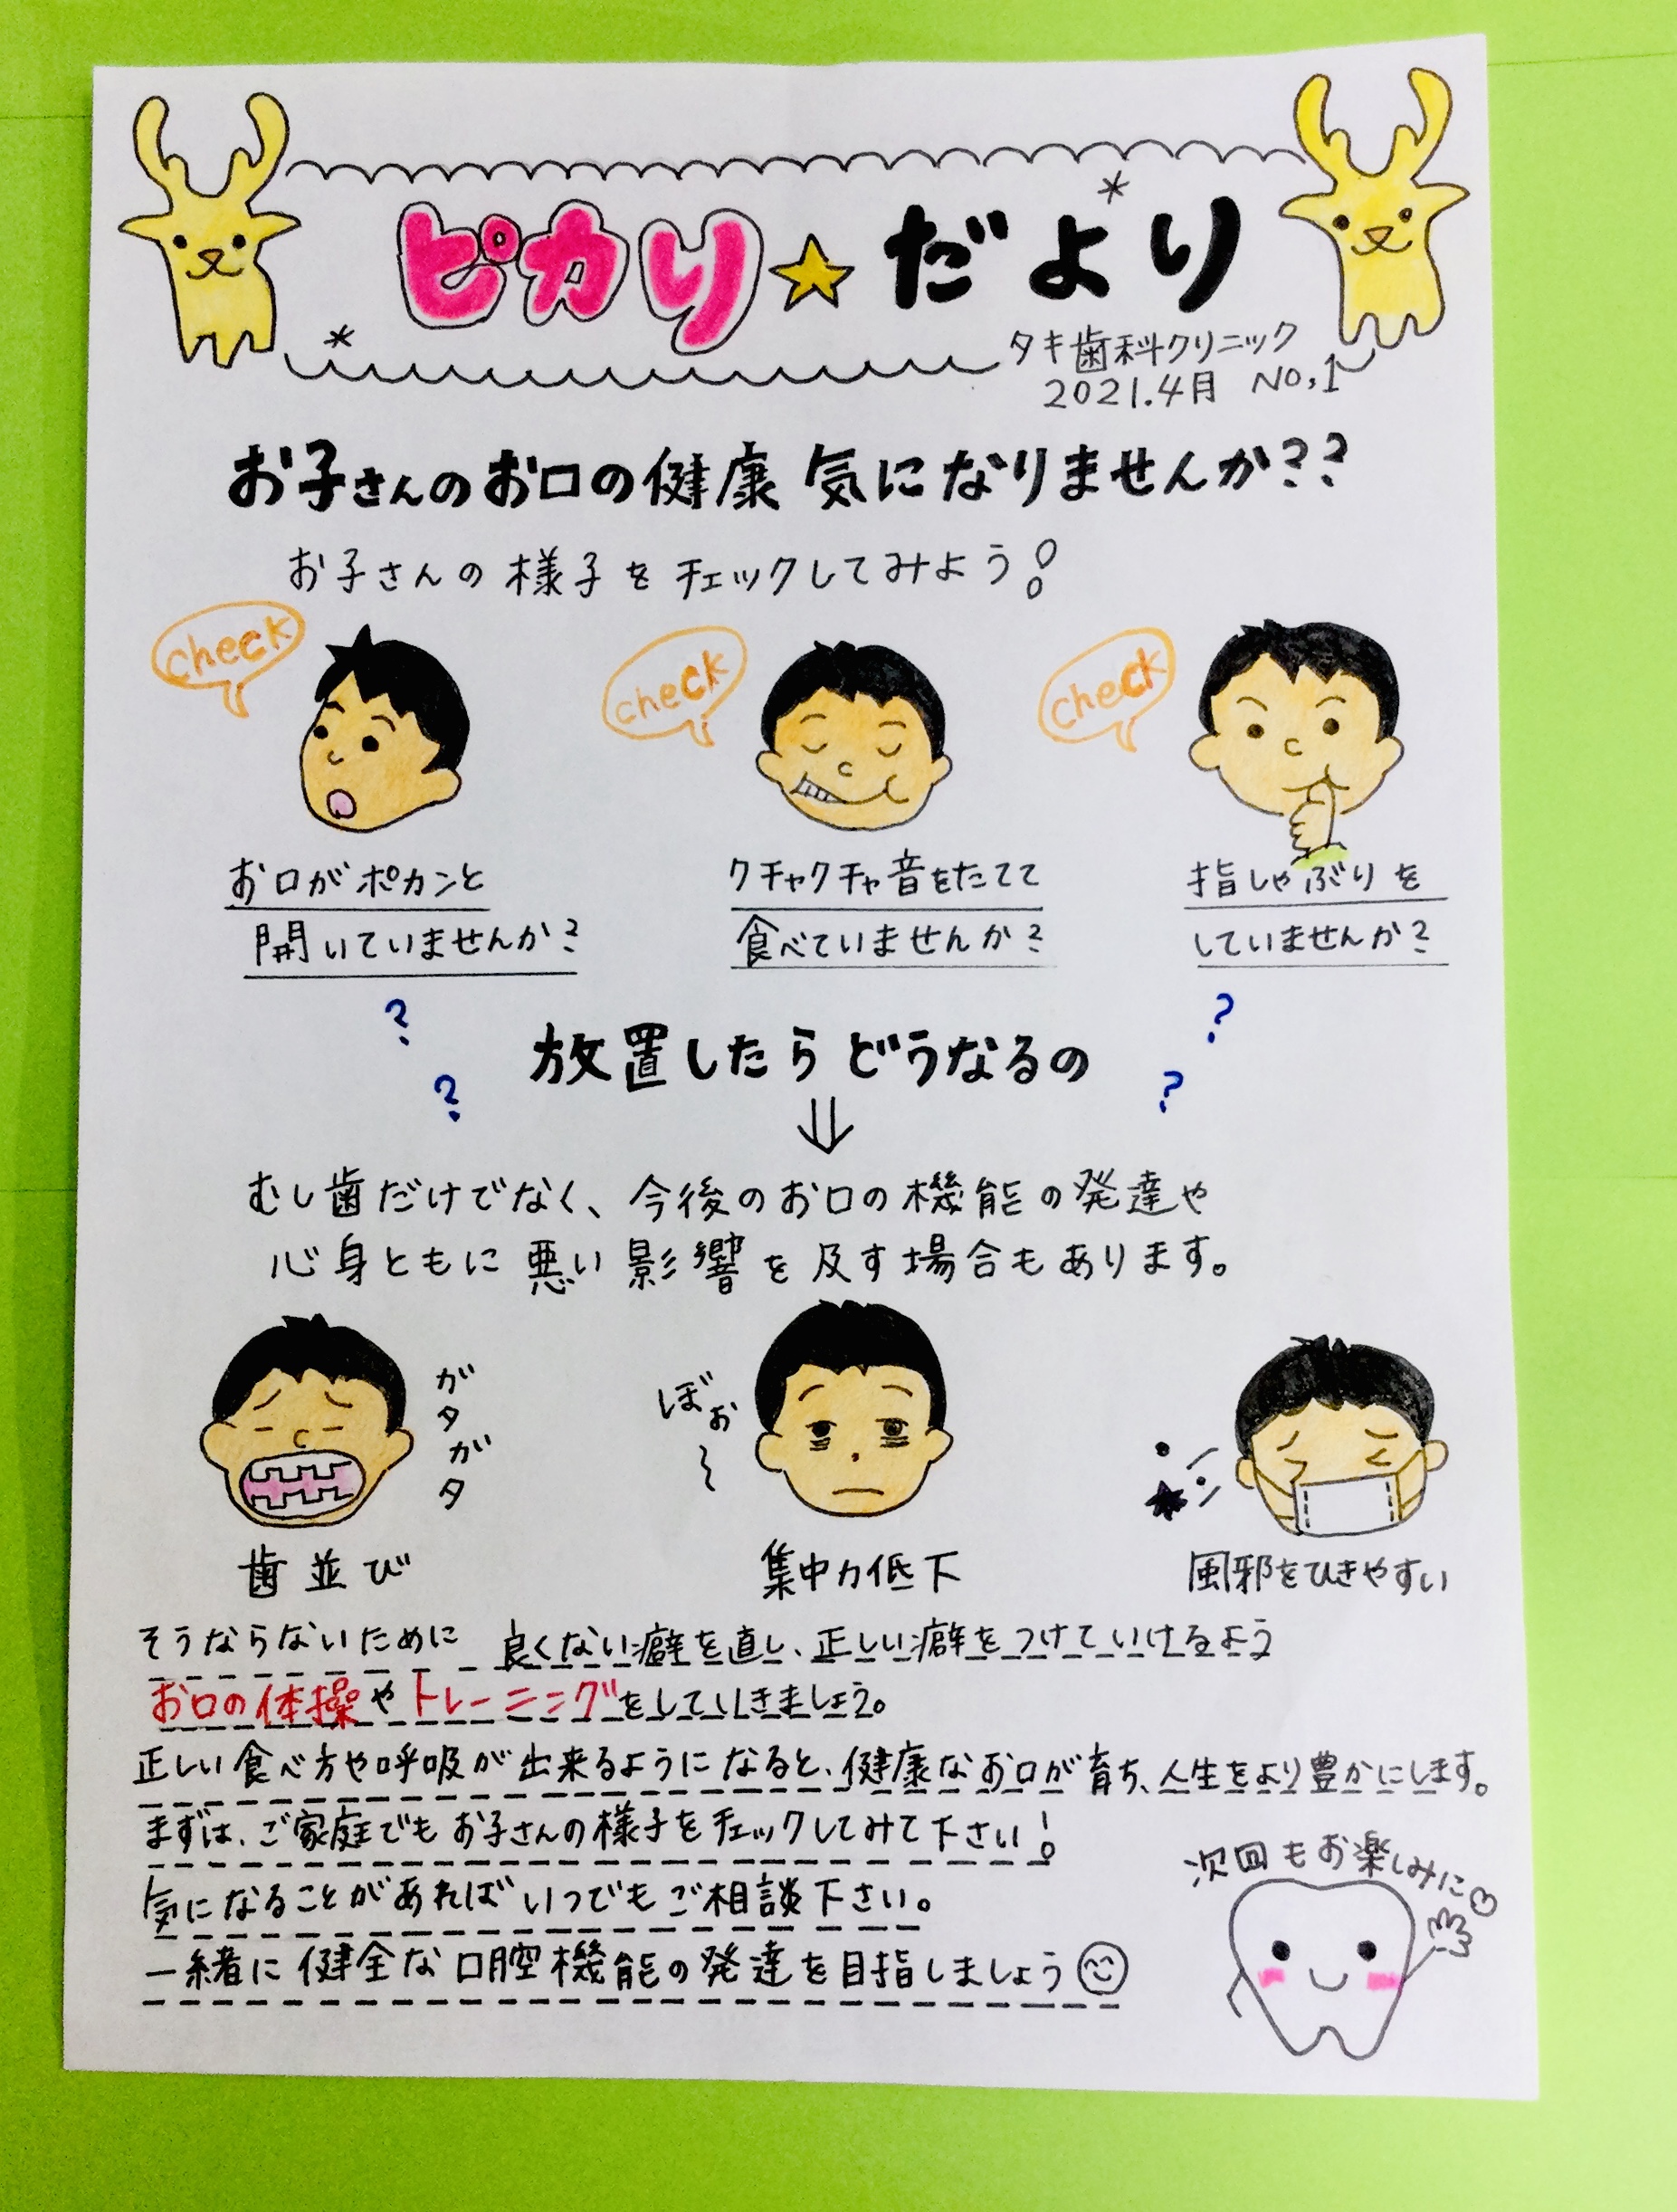 ピカリ★だより
タキ歯科クリニック
2021.4月 No,1
お子さんのお口の健康 気になりませんか??
お子さんの様子をチェックしてみよう!
check
check
check
お口がポカンと
開いていませんか?
クチャクチャ音をたてて
食べていませんか?
指しゃぶりを
していませんか?
? ?
放置したらどうなるの
? ?
⇓
むし歯だけでなく、今後のお口の機能の発達や
心身ともに悪い影響を及す場合もあります。
ガタガタ
ぼぉ~
歯並び
集中力低下
風邪をひきやすい
そうならないために 良くない癖を直し、正しい癖をつけていけるよう
お口の体操やトレーニングをしていきましょう。
正しい食べ方や呼吸が出来るようになると、健康なお口が育ち、人生をより豊かにします。
まずは、ご家庭でもお子さんの様子をチェックしてみて下さい!
気になることがあればいつでもご相談下さい。
一緒に健全な口腔機能の発達を目指しましょう☺
次回もお楽しみに♡